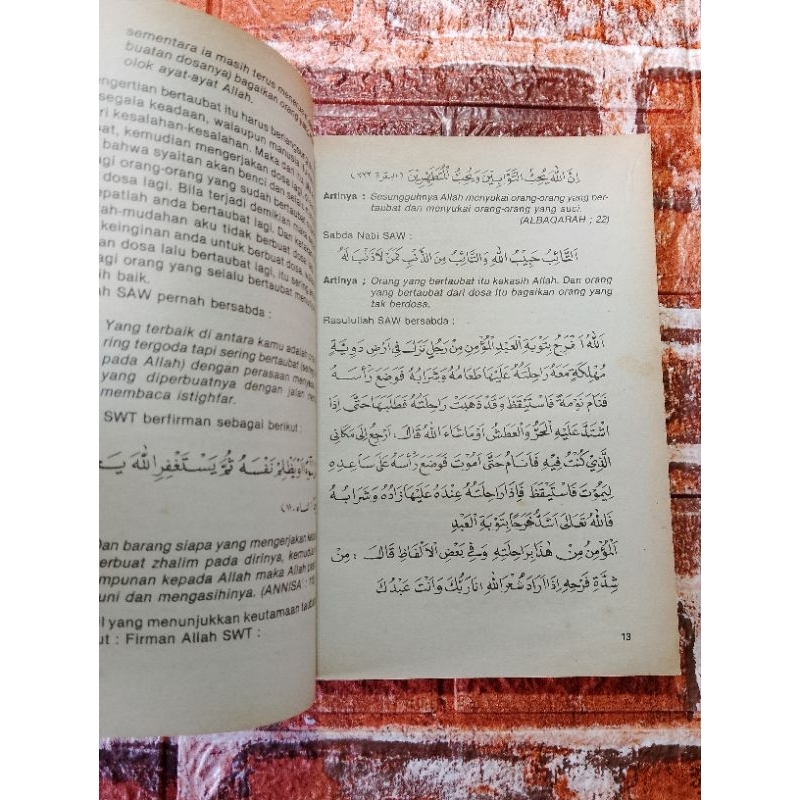 sementara ia masih terus
buatan dosanya) bagaikan orang
olok ayat-ayat Allah.
bertaubat itu harus
segala keadaan, walaupun
kesalahan-kesalahan. Maka
kemudian mengerjakan dosa lagi
bahwa syaitan akan benci dan
orang-orang yang sudah bertaubat
lagi. Bila terjadi demikian maka
anda bertaubat lagi. Dan
aku tidak berbuat dosa
keinginan anda untuk berbuat dosa
dosa lalu bertaubat lagi, itu
orang yang selalu bertaubat
baik.
SAW pernah bersabda :
Yang terbaik di antara kamu adalah
ring tergoda tapi sering bertaubat
pada Allah) dengan perasaan
yang diperbuatnya dengan jalan
membaca istighfar.
SWT berfirman sebagai berikut :
أَوْيَظْلِمْ نَفْسَهُ ثُمَّ يَسْتَغْفِرِاللهَ
Dan barang siapa yang mengerjakan
berbuat zhalim pada dirinya,
kepada Allah maka Allah
dan mengasihinya. (ANNISA :
yang menunjukkan keutamaan
: Firman Allah SWT :
إِنَّ اللهَ يُحِبُّ التَّوَّابِيْنَ وَيُحِبُّ الْمُتَطَهِّرِيْنَ (البقرة ٢٢٢)
Artinya : Sesungguhnya Allah menyukai orang-orang yang ber-
taubat dan menyukai orang-orang yang suci.
(ALBAQARAH ; 22)
Sabda Nabi SAW :
اَلتَّائِبُ حَبِيْبُ اللهِ وَالتَّائِبُ مِنَ الذَّنْبِ كَمَنْ لَاذَنْبَ لَهُ
Artinya ; Orang yang bertaubat itu kekasih Allah. Dan orang
yang bertaubat dari dosa itu bagaikan orang yang
tak berdosa.
Rasulullah SAW bersabda :
اَللهُ اَفْرَحُ بِتَوْبَةِ الْعَبْدِ الْمُؤْمِنِ مِنْ رَجُلٍ نَزَلَ فِى اَرْضٍ دَوِيَّةٍ
مُهْلِكَةٍ مَعَهُ رَاحِلَتُهُ عَلَيْهَا طَعَامُهُ وَشَرَابُهُ فَوَضَعَ رَأْسَهُ
فَنَامَ نَوْمَةً فَاسْتَيْقَظَ وَقَدْ ذَهَبَتْ رَاحِلَتُهُ فَطَلَبَهَا حَتَّى اِذَا
اشْتَدَّ عَلَيْهِ الْحَرُّ وَالْعَطَشُ اَوْ مَاشَاءَ اللهُ قَالَ. اَرْجِعُ اِلَى مَكَانِى
الَّذِى كُنْتُ فِيْهِ فَاَنَامُ حَتَّى اَمُوْتَ فَوَضَعَ رَأْسَهُ عَلَى سَاعِدِهِ
لِيَمُوْتَ فَاسْتَيْقَظَ فَاِذَا رَاحِلَتُهُ عِنْدَهُ عَلَيْهَا زَادُهُ وَشَرَابُهُ
فَاللهُ تَعَالَى اَشَدُّ فَرَحًا بِتَوْبَةِ الْعَبْدِ
الْمُؤْمِنِ مِنْ هٰذَا بِرَاحِلَتِهِ وَفِى بَعْضِ الْاَلْفَاظِ قَالَ : مِنْ
شِدَّةِ فَرَحِهِ اِذَا اَرَادَ شُكْرَ اللهِ اَنَا رَبُّكَ وَاَنْتَ عَبْدُكَ
13